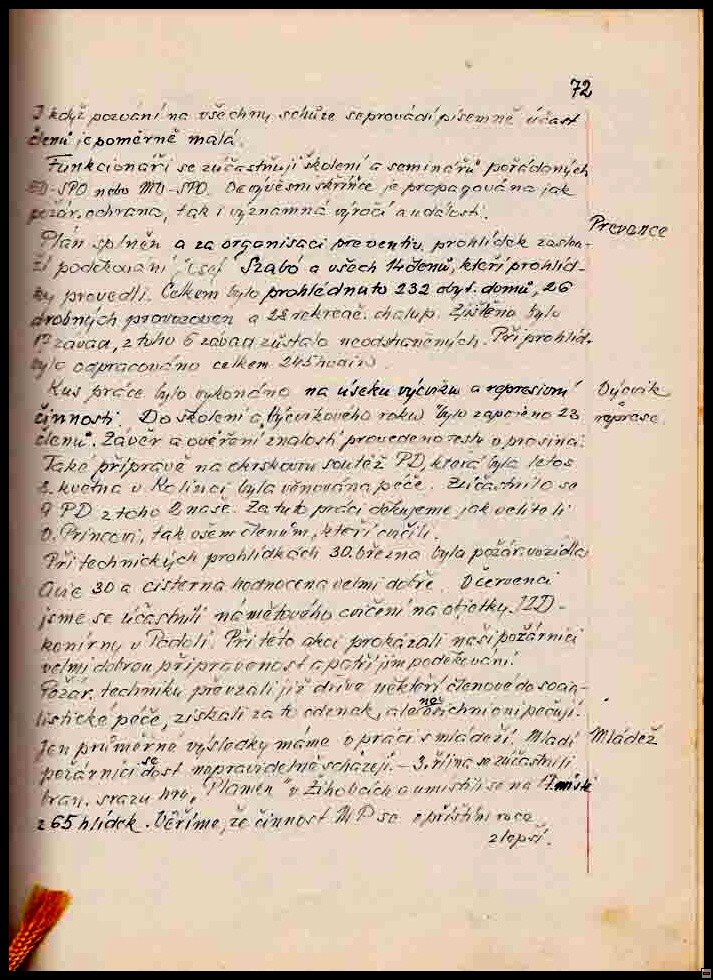 72
I když pozvání na všechny schůze se provádí písemně účast
členů je poměrně malá.
Funkcionáři se zúčastňují školení a seminářů pořádaných
SPO nebo MV-SPO. je propagována jak
požár. ochrana, tak i významná výročí a události.
Prevence
Plán splněn a za organisaci preventiv. prohlídek zaslou-
ží poděkování Josef Szabó a všech 14 členů, kteří prohlíd-
ky provedli. Celkem bylo prohlédnuto 232 obyt. domů, 26
drobných provozoven a 28 rekreač. chalup. Zjištěno bylo
závad, z toho 6 závad zůstalo neodstraněných. Při prohlíd.
bylo odpracováno celkem 245 hodin.
Kus práce bylo vykonáno na úseku výcviku a represivní
Výcvik
činnosti. Do školení a výcvikového roku bylo zapojeno 23
represe
členů. Závěr a ověření znalostí provedeno testy v prosinci.
Také přípravě na okrskovou soutěž PD, která byla letos
8. května v Kolinci byla věnována péče. Zúčastnilo se
9 PD z toho 2 naše. Za tuto práci děkujeme jak veliteli
Princovi, tak všem členům, kteří cvičili.
Při technických prohlídkách 30. března byla požár. vozidla
Avie 30 a cisterna hodnocena velmi dobře. V červenci
jsme se účastnili námětového cvičení na objekty JZD -
konírny v Podolí. Při této akci prokázali naši požárníci
velmi dobrou připravenost a patří jim poděkování.
Požár. techniku převzali již dříve někteří členové do socia-
listické péče, získali za to odznak, ale ne všichni o ni pečují.
Jen průměrné výsledky máme v práci s mládeží. Mladí
Mládež
požárníci se dost nepravidelně scházejí. - 3. října se zúčastnili
bran. srazu hry "Plamen" v Žihobcích a umístili se na 17. místě
z 65 hlídek. Věříme, že činnost MP se v příštím roce
zlepší.